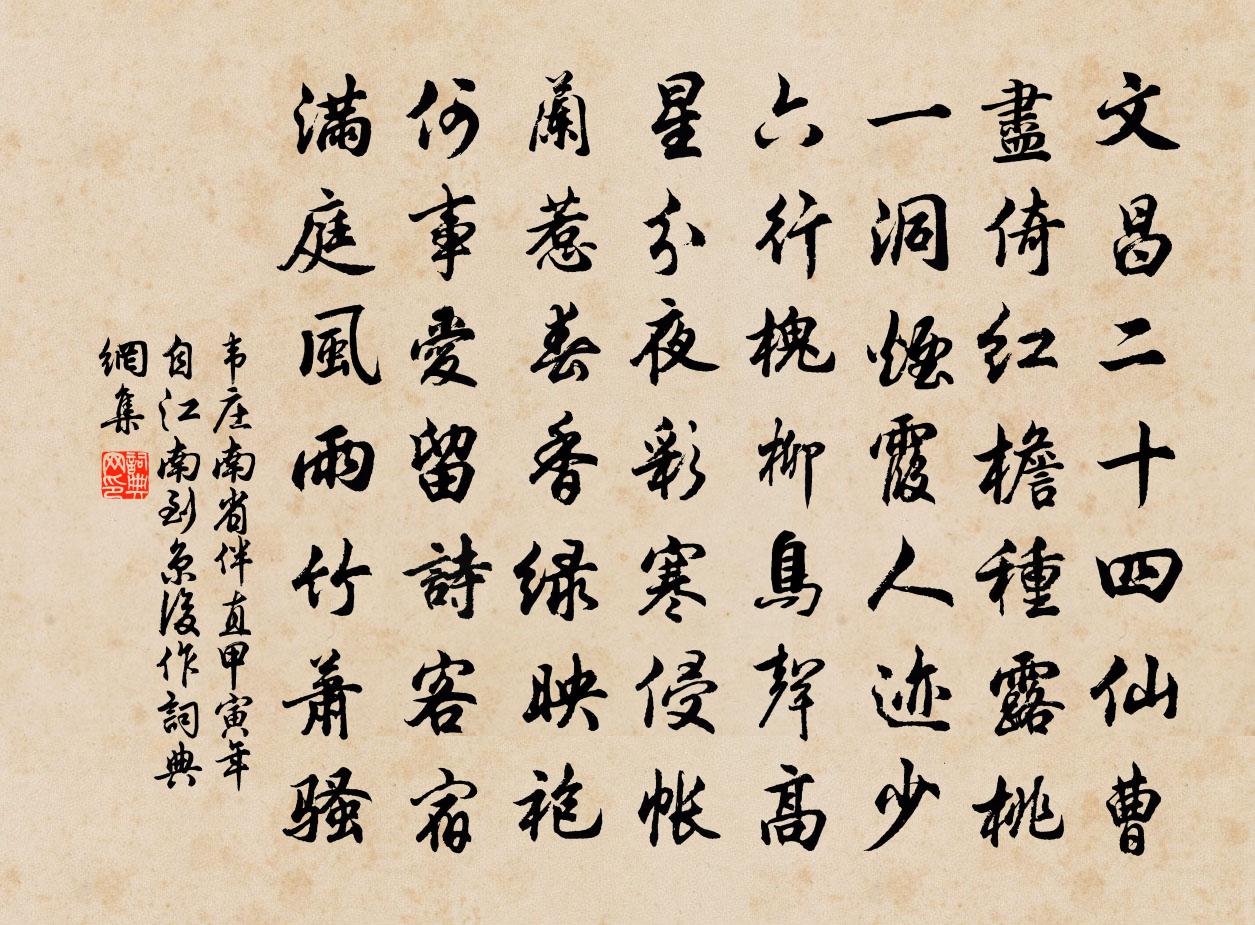 文昌二十四仙曹
盡倚红檐種露桃
一洞煙霞人迹少
六行槐柳鳥聲高
星分夜彩寒侵帐
蘭惹春香绿映袍
何事愛留詩客宿
满庭風雨竹蕭騷
韦庄南省伴直甲寅年
自江南到京後作詞典
網集
詞典网印